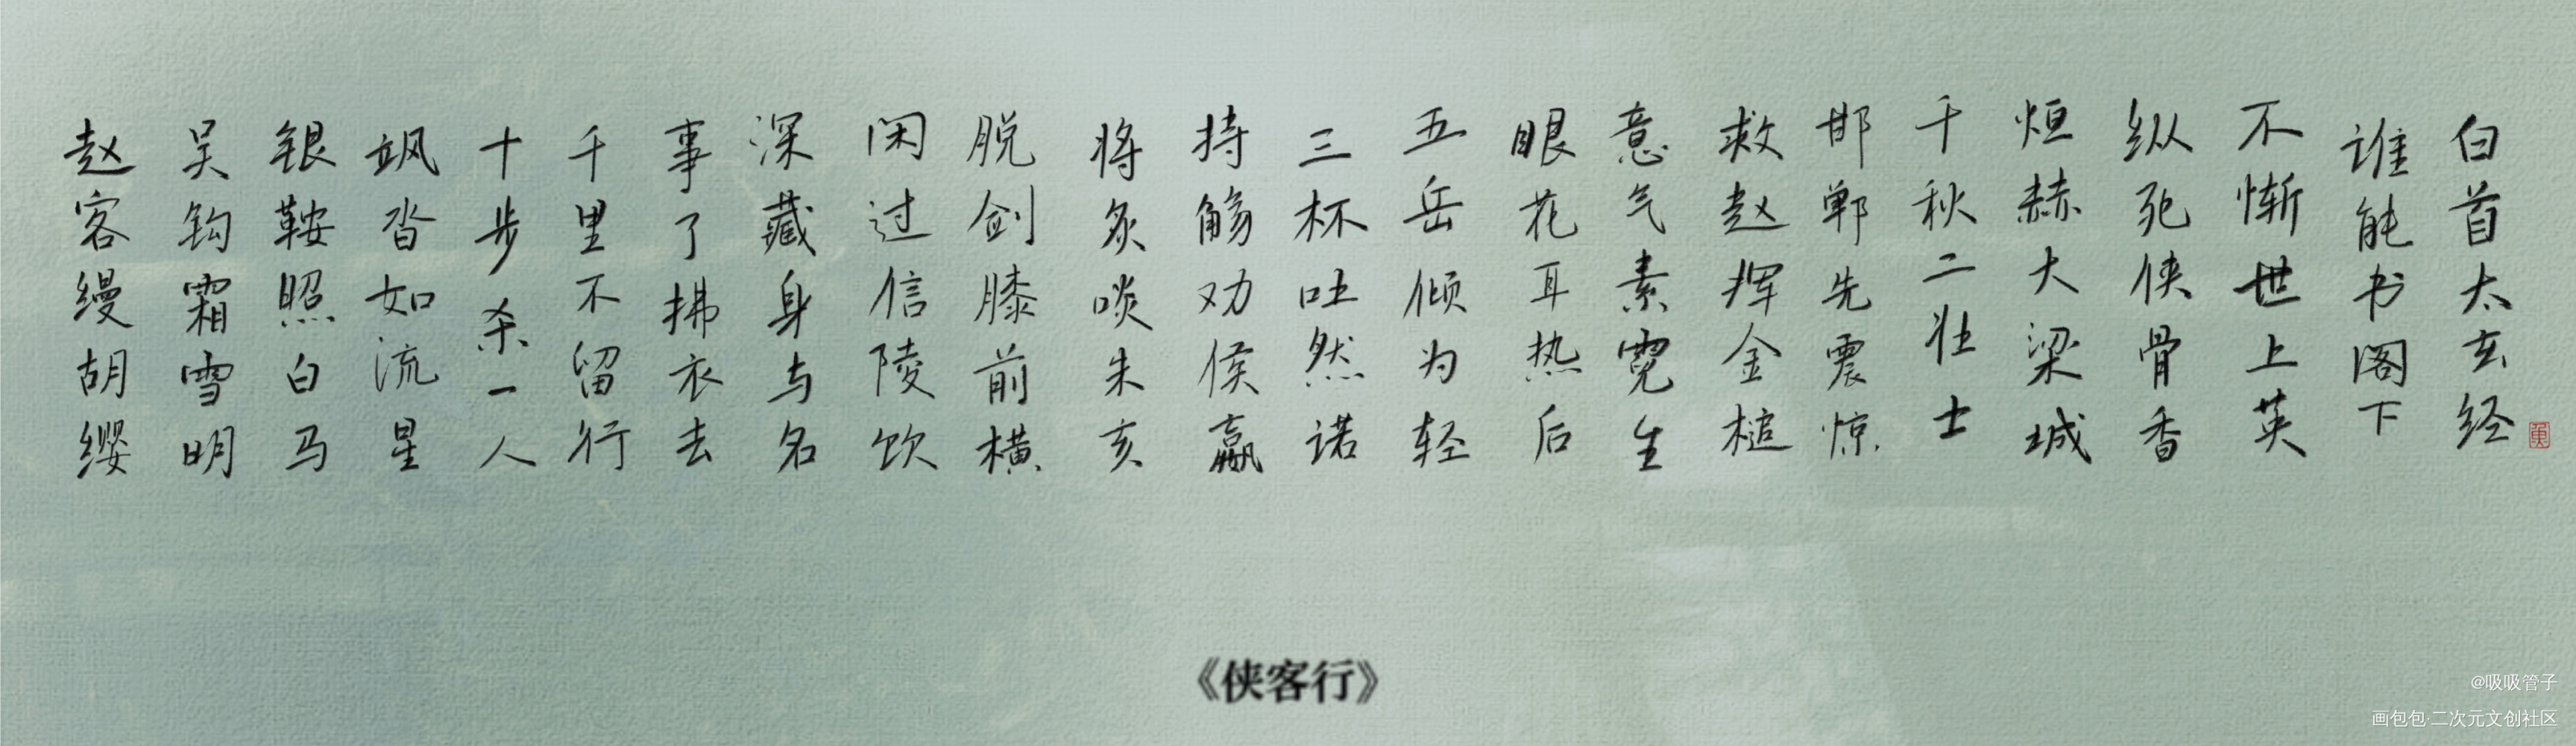 赵客缦胡缨
吴钩霜雪明
银鞍照白马
飒沓如流星
十步杀一人
千里不留行
事了拂衣去
深藏身与名
闲过信陵饮
脱剑膝前横
将炙啖朱亥
持觞劝侯嬴
三杯吐然诺
五岳倾为轻
眼花耳热后
意气素霓生
救赵挥金槌
邯郸先震惊
千秋二壮士
烜赫大梁城
纵死侠骨香
不惭世上英
谁能书阁下
白首太玄经
《侠客行》
@吸吸管子
画包包·二次元文创社区